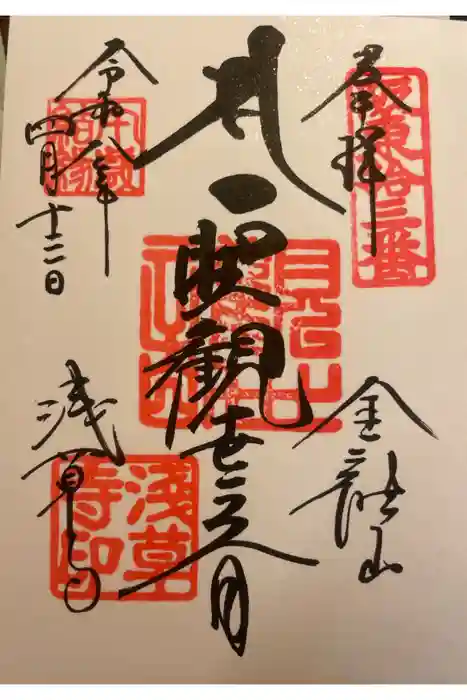 奉拝
坂東拾三番
金龍山
聖観世音
令和八年
四月十二日
浅草寺
浅草寺印